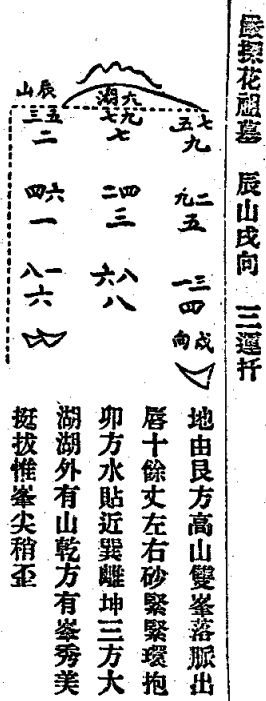 嚴探花祖墓 辰山戌向 三運扦
山辰
湖大
五七
九
七九
七
三五
二
九二
五
二四
三
四六
一
一三
四
六八
八
八一
六
向戌
地由艮方高山雙峯落脈出
唇十餘丈左右砂緊緊環抱
卯方水貼近巽離坤三方大
湖湖外有山乾方有峯秀美
挺拔惟峯尖稍歪